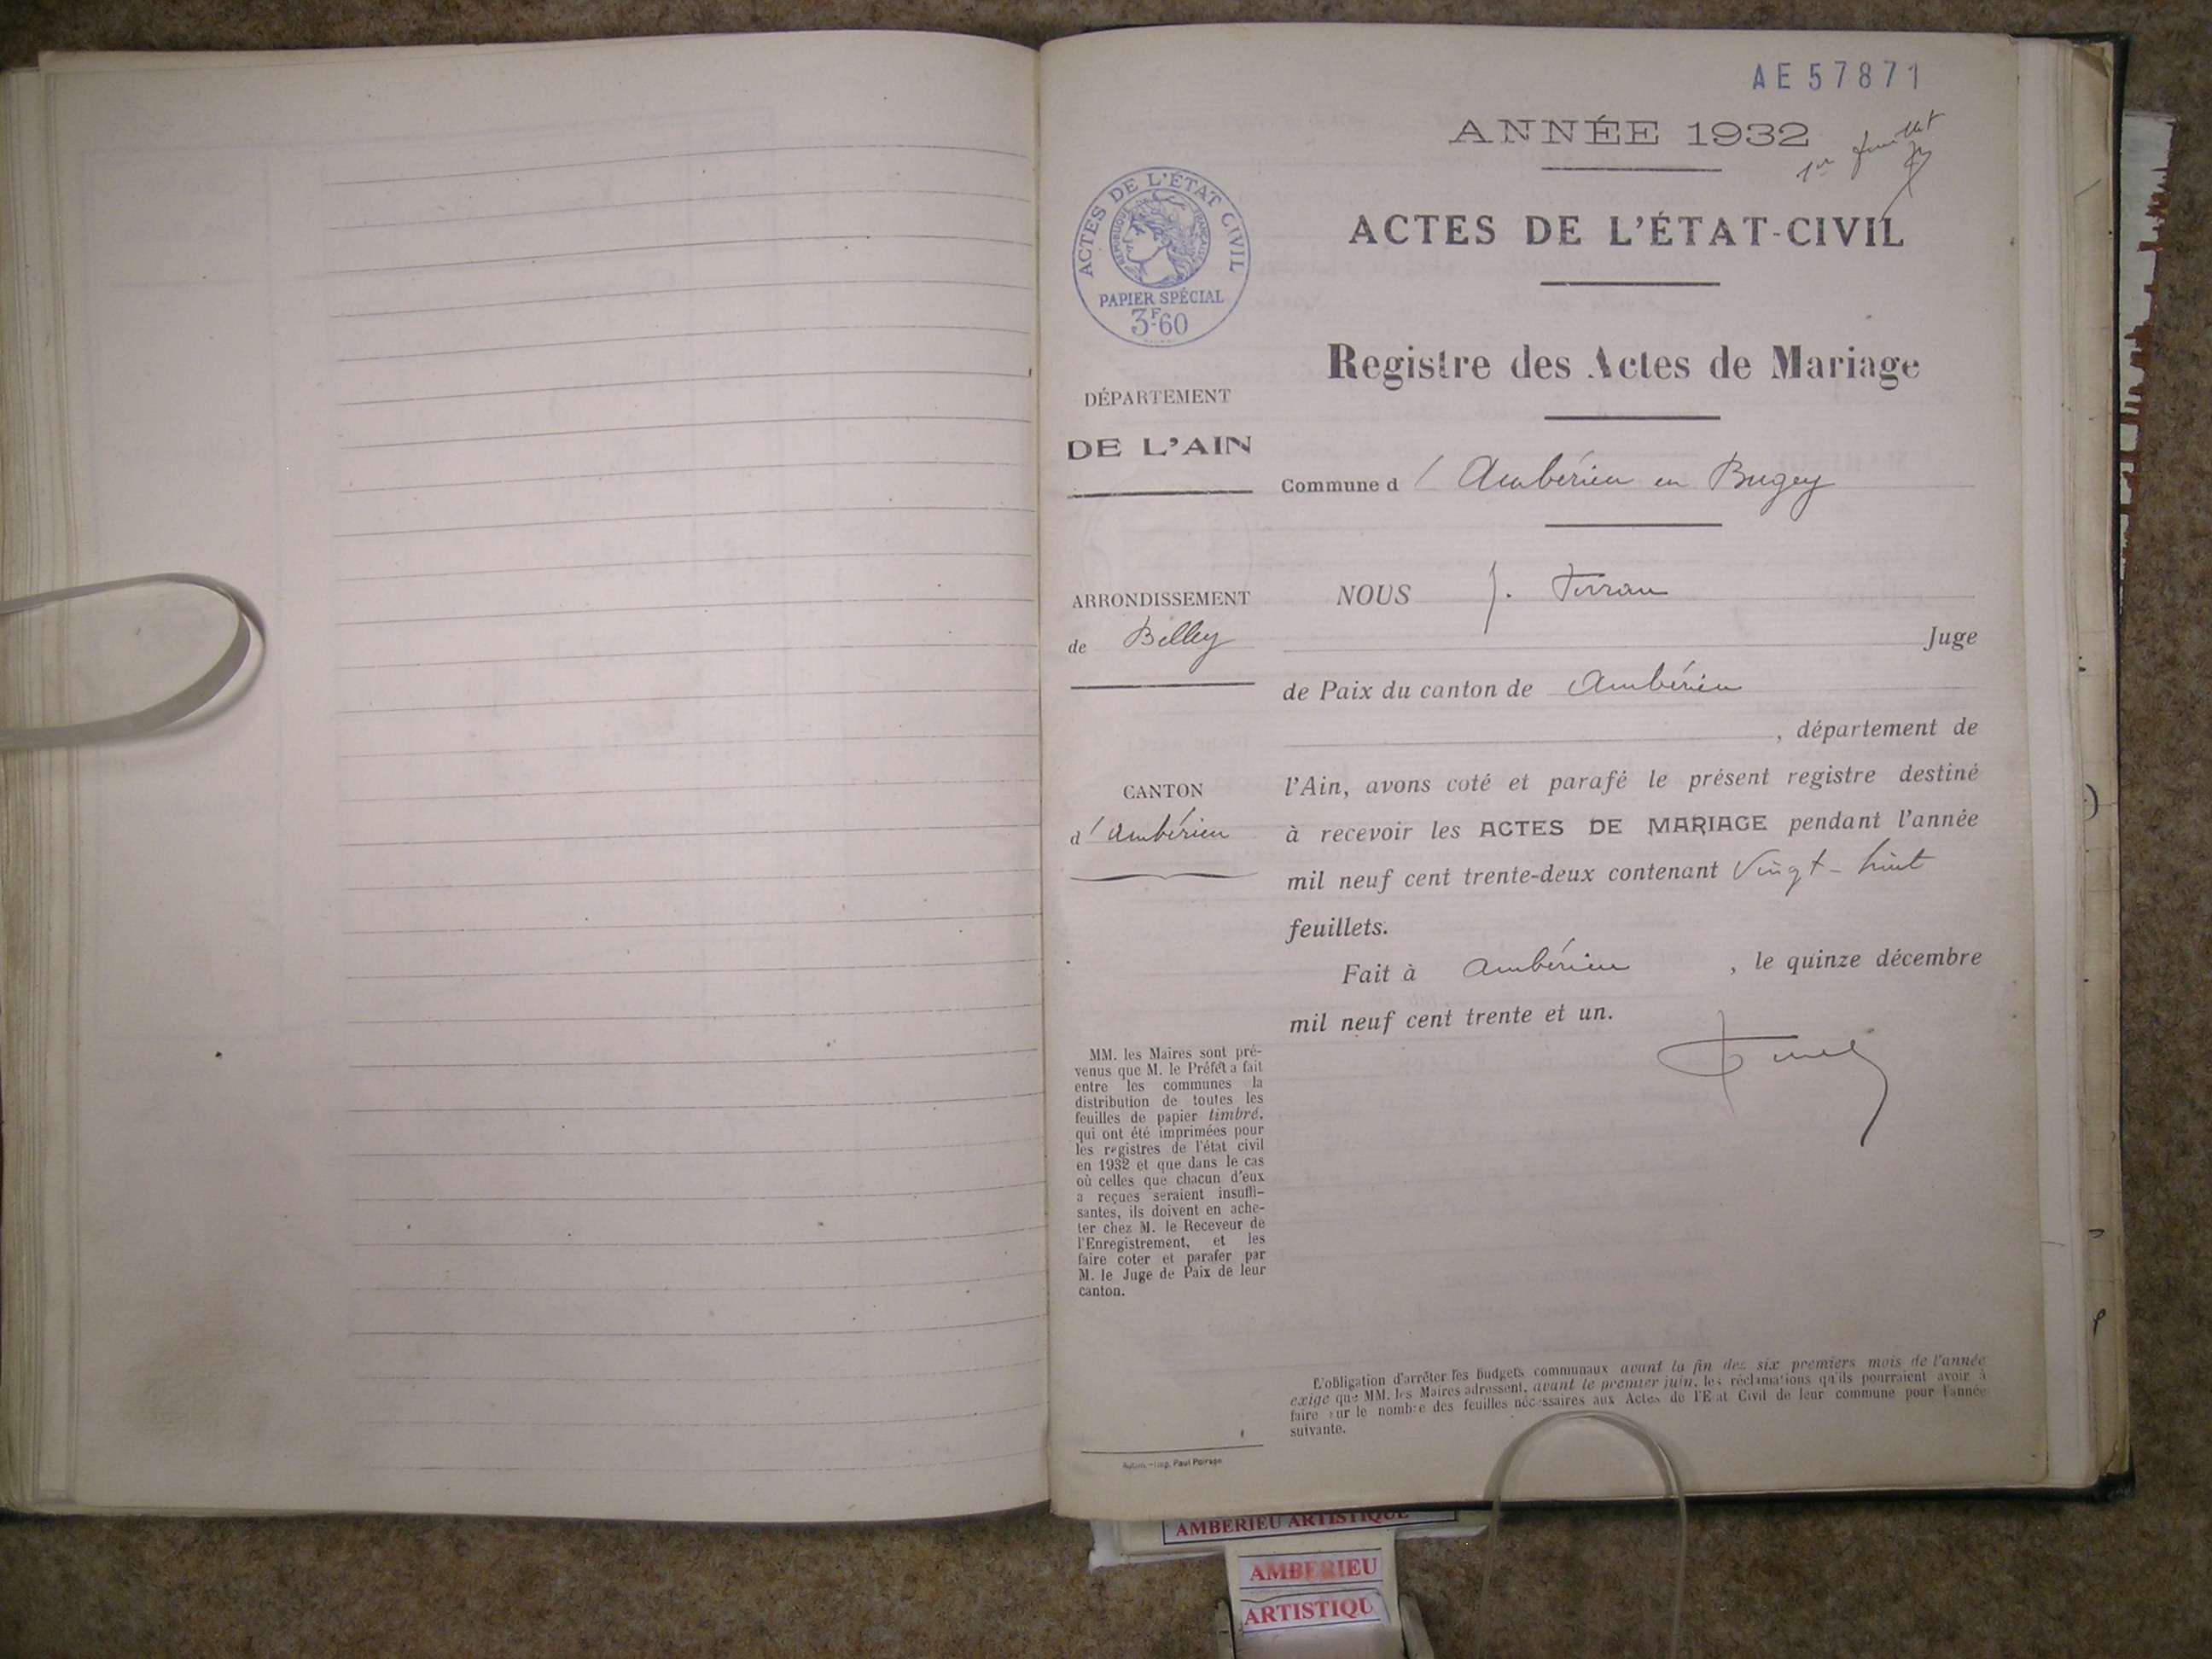 AE 57871
ANNÉE 1932
1er feuillet
ACTES DE L'ÉTAT CIVIL
REPUBLIQUE FRANÇAISE
PAPIER SPÉCIAL
3F60
ACTES DE L'ÉTAT-CIVIL
Registre des Actes de Mariage
DÉPARTEMENT
DE L'AIN
Commune d' Ambérieu en Bugey
ARRONDISSEMENT
de Belley
NOUS J.
Juge
de Paix du canton de Ambérieu
, département de
CANTON
d'Ambérieu
l'Ain, avons coté et parafé le présent registre destiné
à recevoir les ACTES DE MARIAGE pendant l'année
mil neuf cent trente-deux contenant Vingt-huit
feuillets.
Fait à Ambérieu , le quinze décembre
mil neuf cent trente et un.
MM. les Maires sont pré-
venus que M. le Préfet a fait
entre les communes la
distribution de toutes les
feuilles de papier timbré,
qui ont été imprimées pour
les registres de l'état civil
en 1932 et que dans le cas
où celles que chacun d'eux
a reçues seraient insuffi-
santes, ils doivent en ache-
ter chez M. le Receveur de
l'Enregistrement, et les
faire coter et parafer par
M. le Juge de Paix de leur
canton.
L'obligation d'arrêter les budgets communaux avant la fin des six premiers mois de l'année
exige que MM. les Maires adressent, avant le premier juin, les réclamations qu'ils pourraient avoir à
faire sur le nombre des feuilles nécessaires aux Actes de l'Etat Civil de leur commune pour l'année
suivante.
Autun - Imp. Paul Poirson
AMBERIEU ARTISTIQUE
AMBERIEU
ARTISTIQU